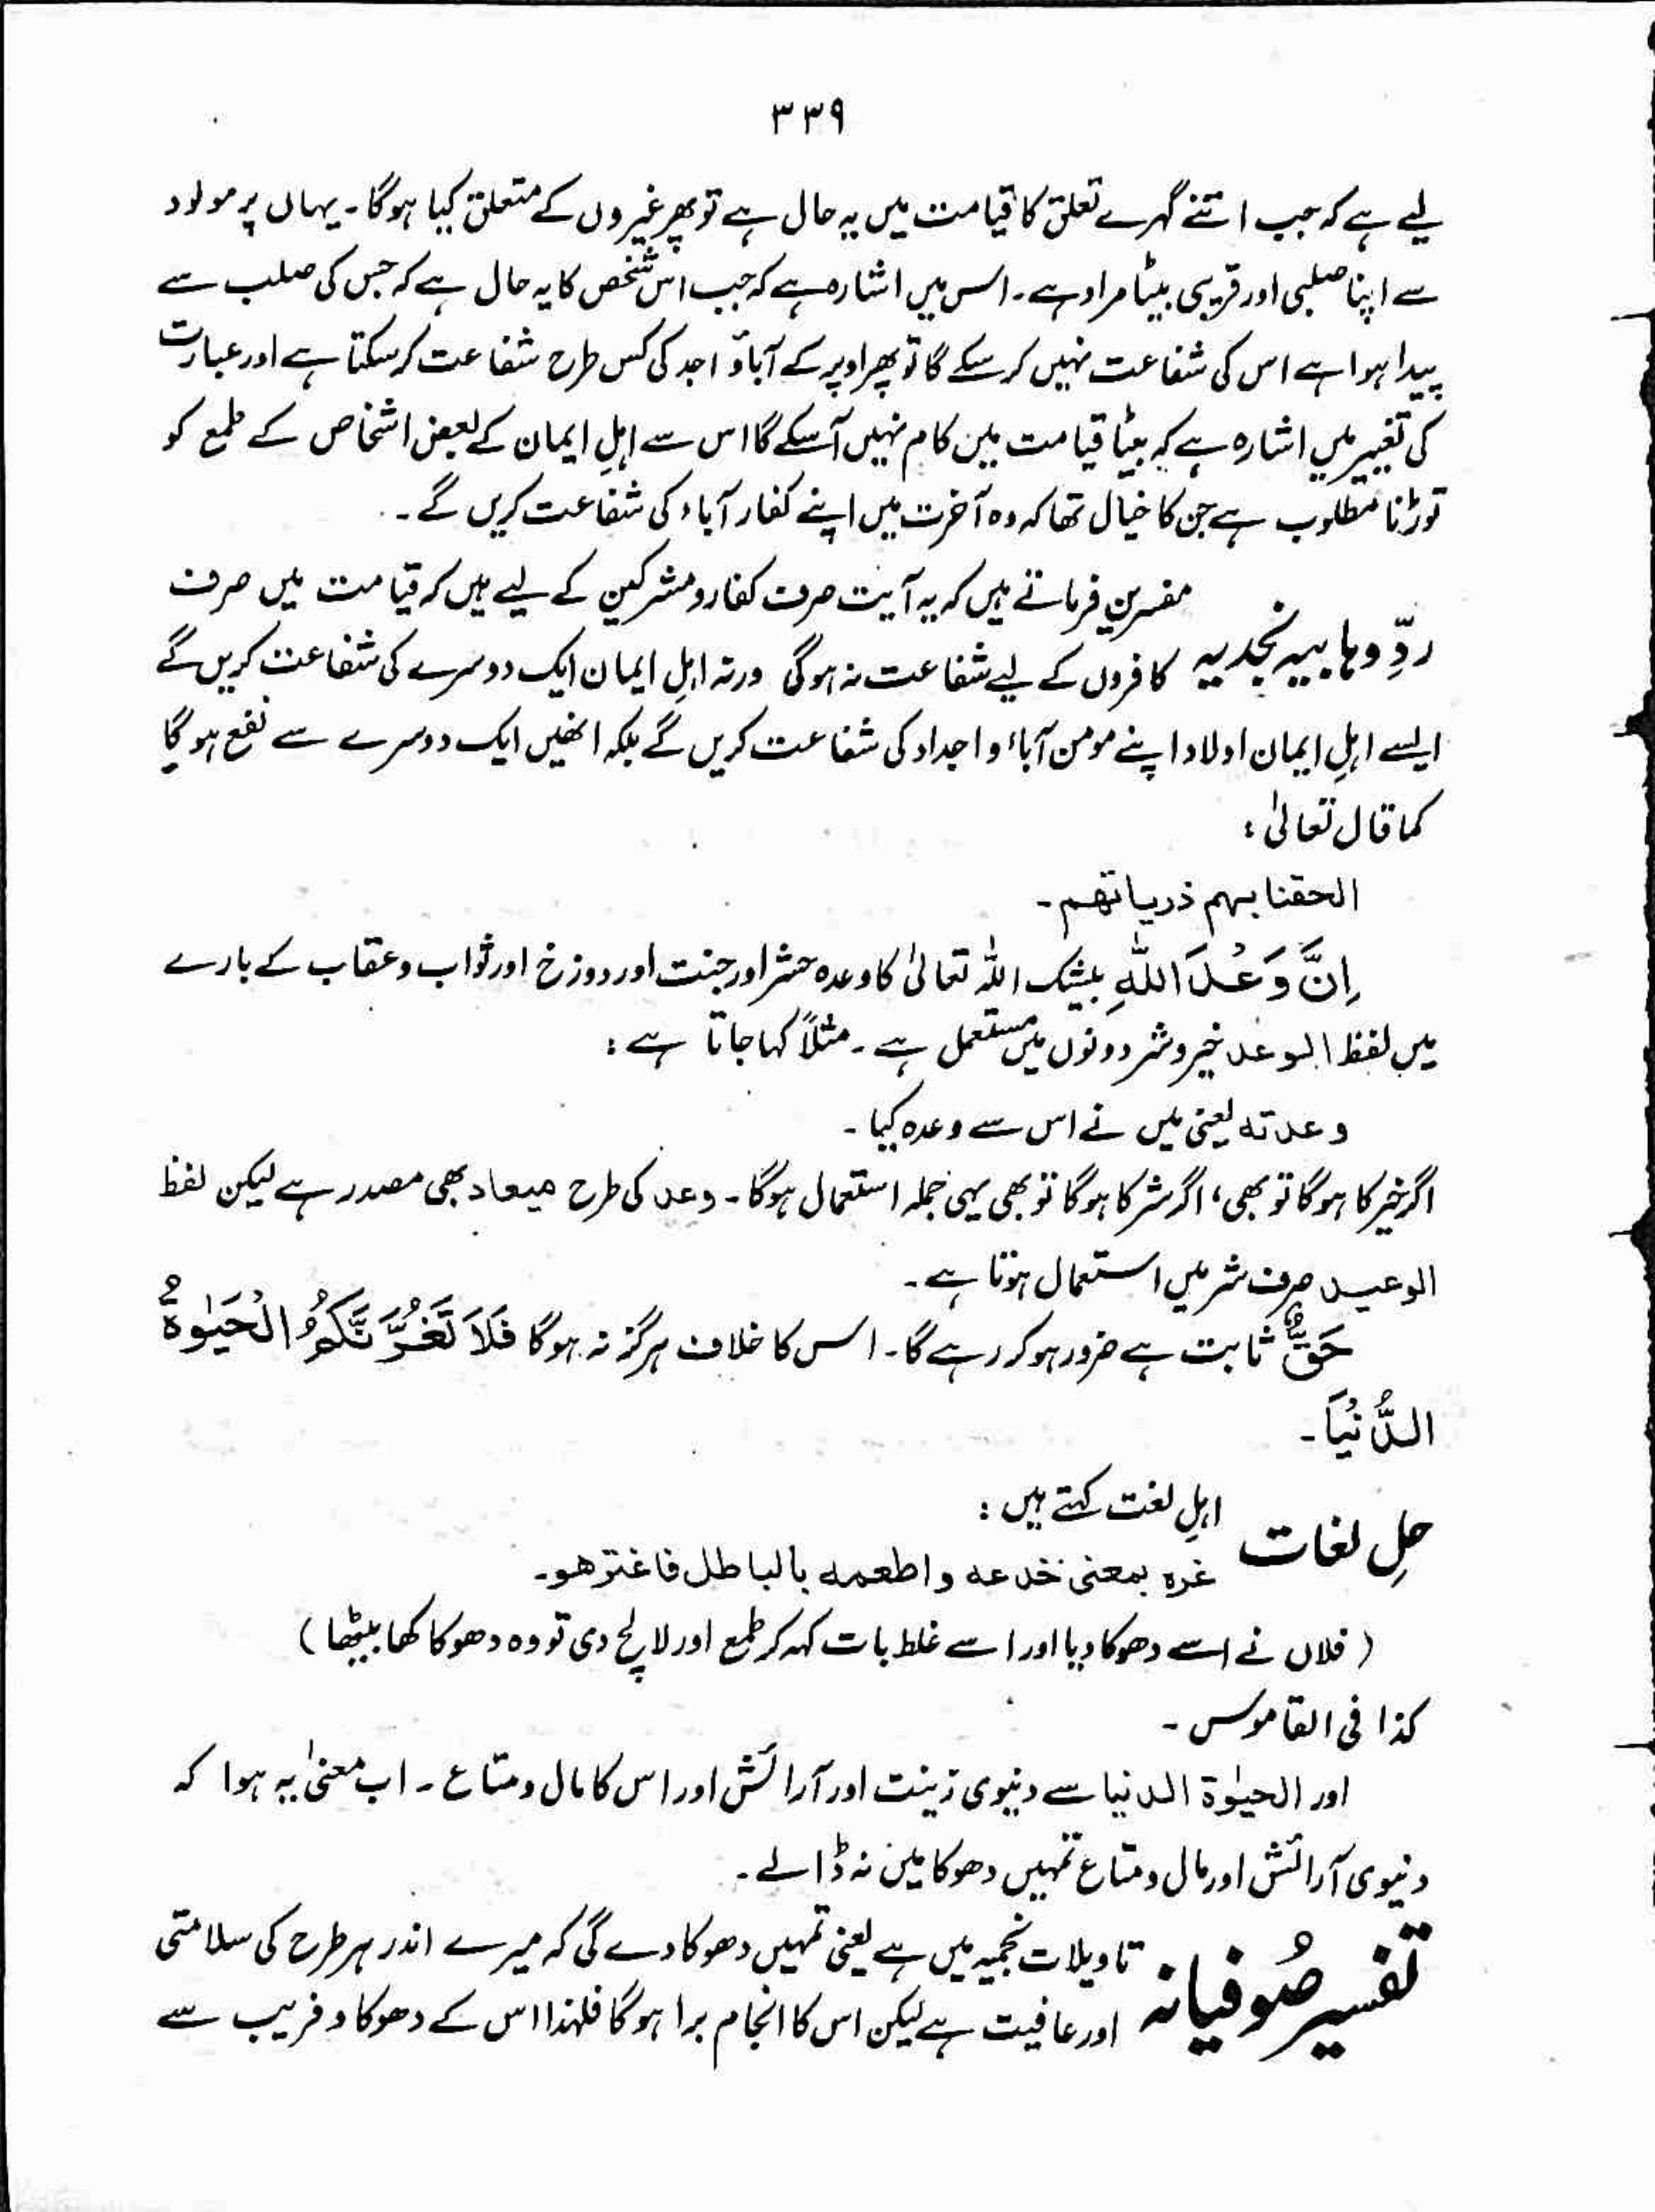 ۳۳۹
لیے ہے کہ جب اتنے گہرے تعلق کا قیامت میں یہ حال ہے تو پھر غیروں کے متعلق کیا ہوگا۔ یہاں پر مولود
سے اپنا صلبی اور قریبی بیٹا مراد ہے۔ اس میں اشارہ ہے کہ جب اس شخص کا یہ حال ہے کہ جس کی صلب سے
پیدا ہوا ہے اس کی شفاعت نہیں کر سکے گا تو پھر اوپر کے آباؤ اجد کی کس طرح شفاعت کر سکتا ہے اور عبارت
کی تغییر میں اشارہ ہے کہ بیٹا قیامت میں کام نہیں آ سکے گا اس سے اہلِ ایمان کے بعض اشخاص کے طمع کو
توڑنا مطلوب ہے جن کا خیال تھا کہ وہ آخرت میں اپنے کفار آباء کی شفاعت کریں گے۔
ردِّ وہابیہ نجدیہ
مفسرین فرماتے ہیں کہ یہ آیت صرف کفار و مشرکین کے لیے ہیں کہ قیامت میں صرف
کافروں کے لیے شفاعت نہ ہوگی ورنہ اہلِ ایمان ایک دوسرے کی شفاعت کریں گے
ایسے اہلِ ایمان اولاد اپنے مومن آباء و اجداد کی شفاعت کریں گے بلکہ انھیں ایک دوسرے سے نفع ہو گا
کما قال تعالیٰ :
الحقنا بہم ذریاتھم۔
اِنَّ وَعْدَ اللّٰهِ بیشک اللہ تعالیٰ کا وعدہ حشر اور جنت اور دوزخ اور ثواب و عقاب کے بارے
میں لفظ الوعد خیر و شر دونوں میں مستعمل ہے۔ مثلاً کہا جاتا ہے :
وعدته یعنی میں نے اس سے وعدہ کیا۔
اگر خیر کا ہوگا تو بھی، اگر شر کا ہوگا تو بھی یہی جملہ استعمال ہوگا۔ وعد کی طرح میعاد بھی مصدر ہے لیکن لفظ
الوعید صرف شر میں استعمال ہوتا ہے۔
حَقٌّ ثابت ہے ضرور ہو کر رہے گا۔ اس کا خلاف ہرگز نہ ہوگا فَلَا تَغُرَّنَّكُمُ الْحَيٰوةُ
الدُّنْيَا۔
حلِ لغات
اہلِ لغت کہتے ہیں :
غره بمعنی خدعه و اطعمه بالباطل فاغتر هو۔
( فلاں نے اسے دھوکا دیا اور اسے غلط بات کہہ کر طمع اور لالچ دی تو وہ دھوکا کھا بیٹھا )
کذا فی القاموس۔
اور الحیٰوۃ الدنیا سے دنیوی زینت اور آرائش اور اس کا مال و متاع ۔ اب معنیٰ یہ ہوا کہ
دنیوی آرائش اور مال و متاع تمہیں دھوکا میں نہ ڈالے۔
تفسیر صُوفیانہ
تاویلات نجمیہ میں ہے یعنی تمہیں دھوکا دے گی کہ میرے اندر ہر طرح کی سلامتی
اور عافیت ہے لیکن اس کا انجام برا ہو گا فلہٰذا اس کے دھوکا و فریب سے